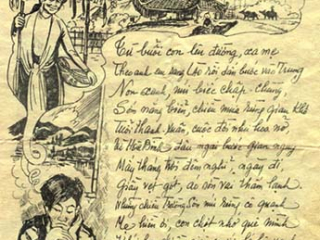 Từ buổi con lên đường, xa mẹ
Theo anh em sang Lào rồi dần bước vào Trung
Non xanh, núi biếc chập chùng
Sớm nắng biển, chiều mưa rừng gian khổ
Tuổi thanh xuân, cuộc đời như hoa nở,
Vì Hòa Bình đâu ngại bước gian nguy
Mấy tháng trời đêm nghỉ, ngày đi,
Giày vẹt gót, áo sờn vai thấm lạnh
Những chiều Trường Sơn núi rừng cô quạnh
Mẹ hiền ơi, con chợt nhớ quê mình